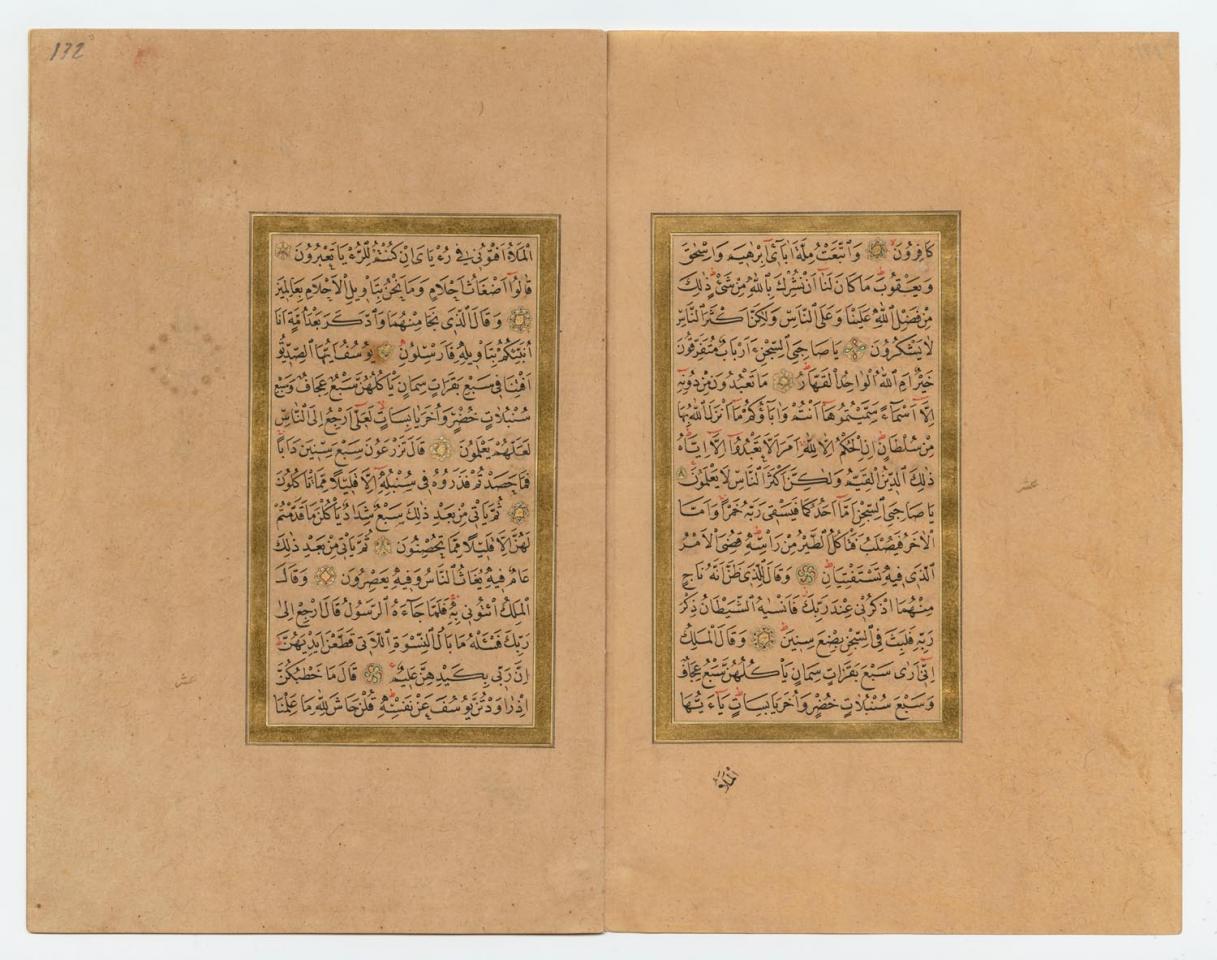 كَافِرُونَ وَاتَّبَعْتُ مِلَّةَ اٰبَآئ۪ٓي اِبْرٰه۪يمَ وَاِسْحٰقَ
وَيَعْقُوبَ مَا كَانَ لَنَآ اَنْ نُشْرِكَ بِاللّٰهِ مِنْ شَيْءٍ ذٰلِكَ
مِنْ فَضْلِ اللّٰهِ عَلَيْنَا وَعَلَى النَّاسِ وَلٰكِنَّ اَكْثَرَ النَّاسِ
لَا يَشْكُرُونَ يَا صَاحِبَيِ السِّجْنِ ءَاَرْبَابٌ مُتَفَرِّقُونَ
خَيْرٌ اَمِ اللّٰهُ الْوَاحِدُ الْقَهَّارُ مَا تَعْبُدُونَ مِنْ دُونِه۪ٓ
اِلَّآ اَسْمَآءً سَمَّيْتُمُوهَآ اَنْتُمْ وَاٰبَآؤُكُمْ مَآ اَنْزَلَ اللّٰهُ بِهَا
مِنْ سُلْطَانٍ اِنِ الْحُكْمُ اِلَّا لِلّٰهِ اَمَرَ اَلَّا تَعْبُدُٓوا اِلَّآ اِيَّاهُ
ذٰلِكَ الدّ۪ينُ الْقَيِّمُ وَلٰكِنَّ اَكْثَرَ النَّاسِ لَا يَعْلَمُونَ
يَا صَاحِبَيِ السِّجْنِ اَمَّآ اَحَدُكُمَا فَيَسْق۪ي رَبَّهُ خَمْرًا وَاَمَّا
الْاٰخَرُ فَيُصْلَبُ فَتَأْكُلُ الطَّيْرُ مِنْ رَأْسِه۪ قُضِيَ الْاَمْرُ
الَّذ۪ي ف۪يهِ تَسْتَفْتِيَانِ وَقَالَ لِلَّذ۪ي ظَنَّ اَنَّهُ نَاجٍ
مِنْهُمَا اذْكُرْن۪ي عِنْدَ رَبِّكَ فَاَنْسٰيهُ الشَّيْطَانُ ذِكْرَ
رَبِّه۪ فَلَبِثَ فِي السِّجْنِ بِضْعَ سِن۪ينَ وَقَالَ الْمَلِكُ
اِنّ۪ٓي اَرٰى سَبْعَ بَقَرَاتٍ سِمَانٍ يَأْكُلُهُنَّ سَبْعٌ عِجَافٌ
وَسَبْعَ سُنْبُلَاتٍ خُضْرٍ وَاُخَرَ يَابِسَاتٍ يَآ اَيُّهَا
الْمَلَأُ
عشر
132
الْمَلَأُ اَفْتُون۪ي ف۪ي رُءْيَايَ اِنْ كُنْتُمْ لِلرُّءْيَا تَعْبُرُونَ
قَالُٓوا اَضْغَاثُ اَحْلَامٍ وَمَا نَحْنُ بِتَأْو۪يلِ الْاَحْلَامِ بِعَالِم۪ينَ
وَقَالَ الَّذ۪ي نَجَا مِنْهُمَا وَادَّكَرَ بَعْدَ اُمَّةٍ اَنَا
اُنَبِّئُكُمْ بِتَأْو۪يلِه۪ فَاَرْسِلُونِ يُوسُفُ اَيُّهَا الصِّدّ۪يقُ
اَفْتِنَا ف۪ي سَبْعِ بَقَرَاتٍ سِمَانٍ يَأْكُلُهُنَّ سَبْعٌ عِجَافٌ وَسَبْعِ
سُنْبُلَاتٍ خُضْرٍ وَاُخَرَ يَابِسَاتٍ لَعَلّ۪ٓي اَرْجِعُ اِلَى النَّاسِ
لَعَلَّهُمْ يَعْلَمُونَ قَالَ تَزْرَعُونَ سَبْعَ سِن۪ينَ دَاَبًا
فَمَا حَصَدْتُمْ فَذَرُوهُ ف۪ي سُنْبُلِه۪ٓ اِلَّا قَل۪يلًا مِمَّا تَأْكُلُونَ
ثُمَّ يَأْت۪ي مِنْ بَعْدِ ذٰلِكَ سَبْعٌ شِدَادٌ يَأْكُلْنَ مَا قَدَّمْتُمْ
لَهُنَّ اِلَّا قَل۪يلًا مِمَّا تُحْصِنُونَ ثُمَّ يَأْت۪ي مِنْ بَعْدِ ذٰلِكَ
عَامٌ ف۪يهِ يُغَاثُ النَّاسُ وَف۪يهِ يَعْصِرُونَ وَقَالَ
الْمَلِكُ ائْتُون۪ي بِه۪ فَلَمَّا جَآءَهُ الرَّسُولُ قَالَ ارْجِعْ اِلٰى
رَبِّكَ فَسْـَٔلْهُ مَا بَالُ النِّسْوَةِ اللَّات۪ي قَطَّعْنَ اَيْدِيَهُنَّ
اِنَّ رَبّ۪ي بِكَيْدِهِنَّ عَل۪يمٌ قَالَ مَا خَطْبُكُنَّ
اِذْ رَاوَدْتُنَّ يُوسُفَ عَنْ نَفْسِه۪ قُلْنَ حَاشَ لِلّٰهِ مَا عَلِمْنَا
عشر